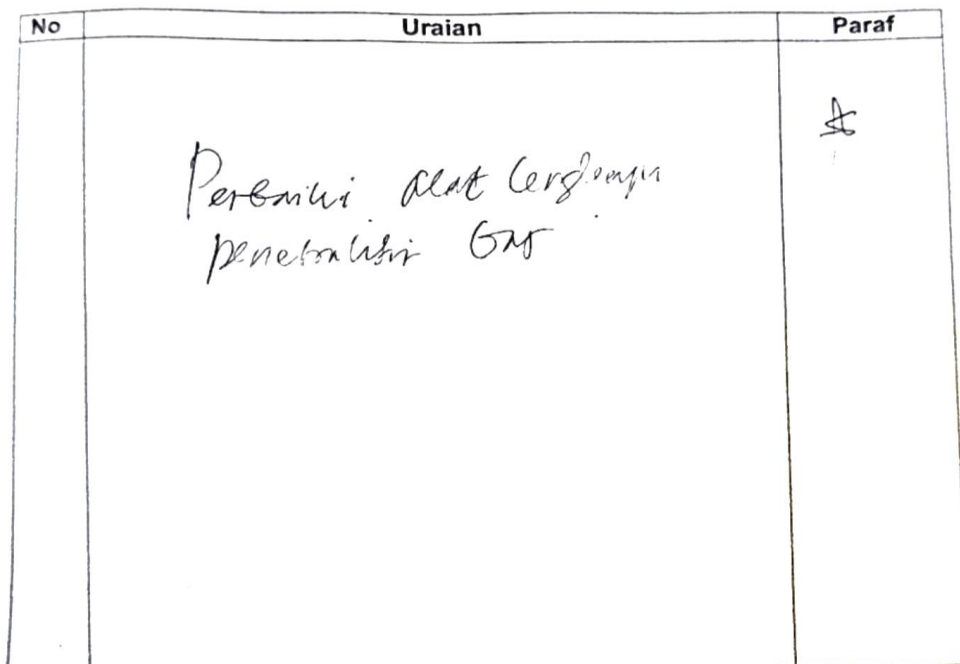 No Uraian Paraf
Perbaiki alat
penetralisir Gas